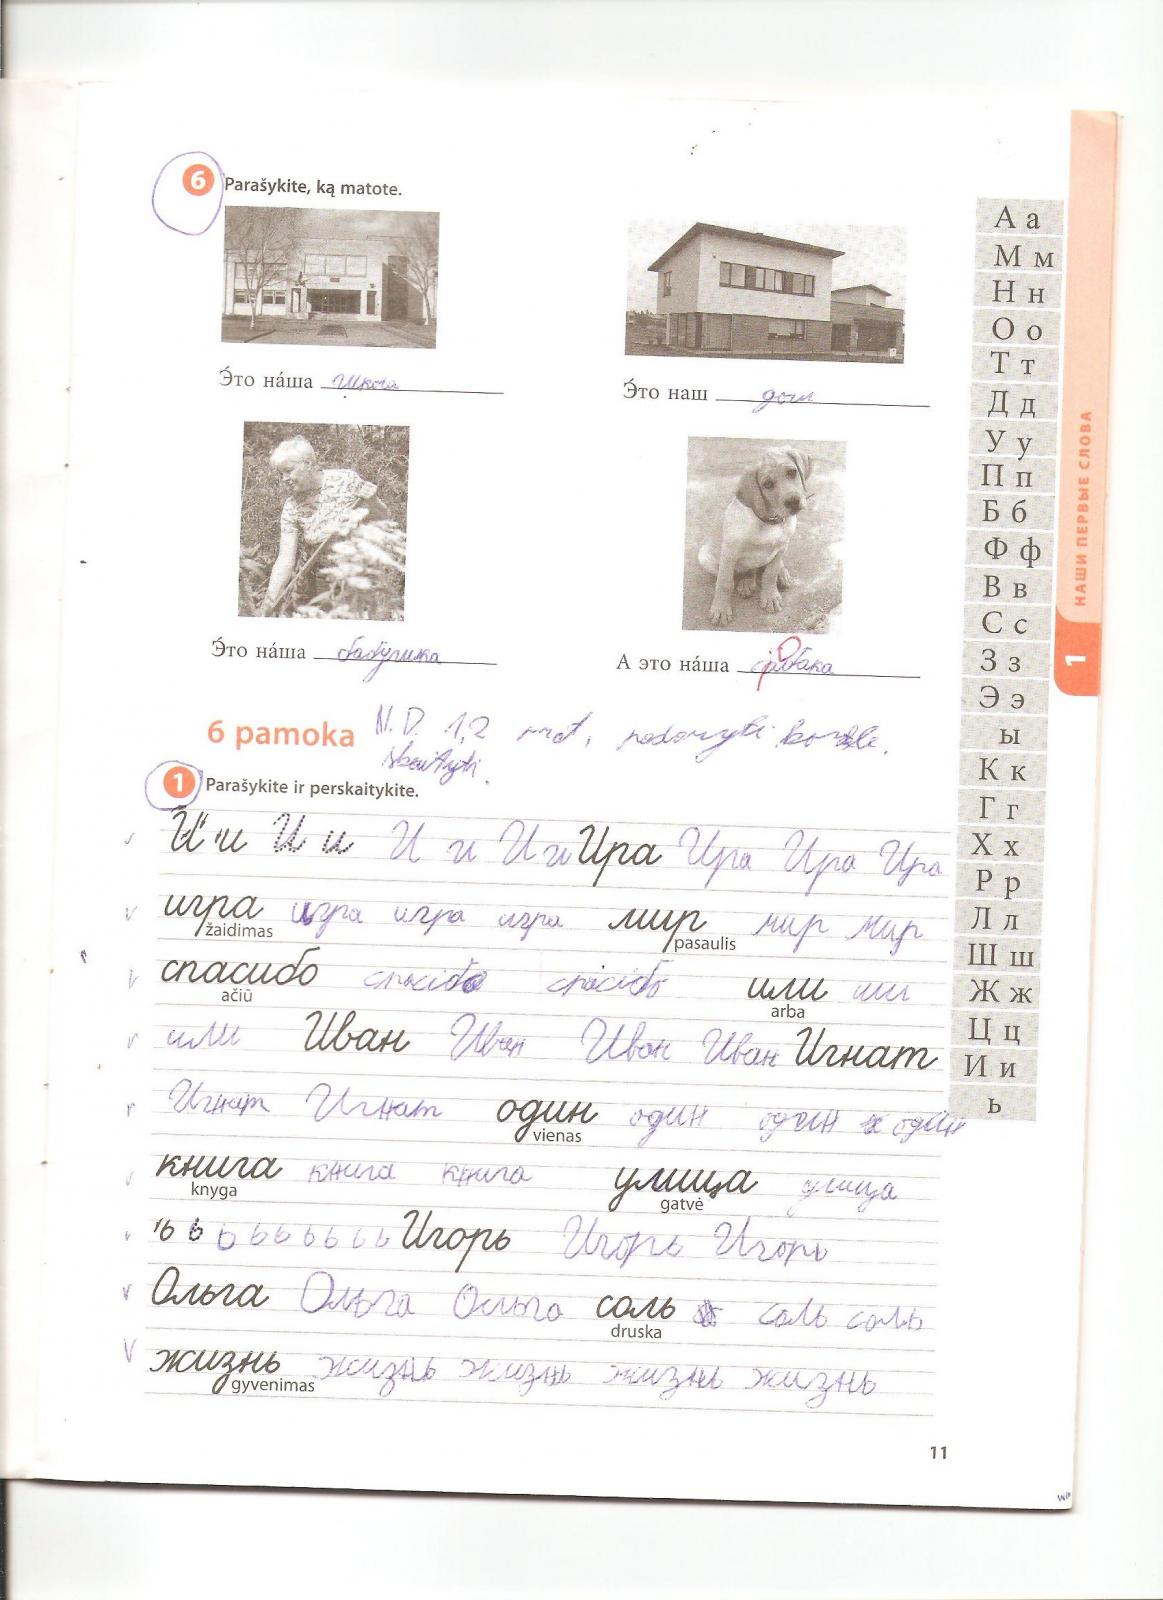 6 Parašykite, ką matote.
Э́то на́ша школа
Э́то наш дом
Э́то на́ша бабушка
А это на́ша собака
6 pamoka N.D. 1,2 prat,
skaityti.
1 Parašykite ir perskaitykite.
И и И и И и И и Ира Ира Ира Ира
игра игра игра игра мир мир мир
žaidimas pasaulis
спасибо спасибо спасибо или или
ačiū arba
или Иван Иван Иван Иван Игнат
Игнат Игнат один один один один
vienas
книга книга книга улица улица
knyga gatvė
ь ь ь ь ь ь ь ь ь Игорь Игорь Игорь
Ольга Ольга Ольга соль соль соль
druska
жизнь жизнь жизнь жизнь жизнь
gyvenimas
11
А а
М м
Н н
О о
Т т
Д д
У у
П п
Б б
Ф ф
В в
С с
З з
Э э
ы
К к
Г г
Х х
Р р
Л л
Ш ш
Ж ж
Ц ц
И и
ь
НАШИ ПЕРВЫЕ СЛОВА
1